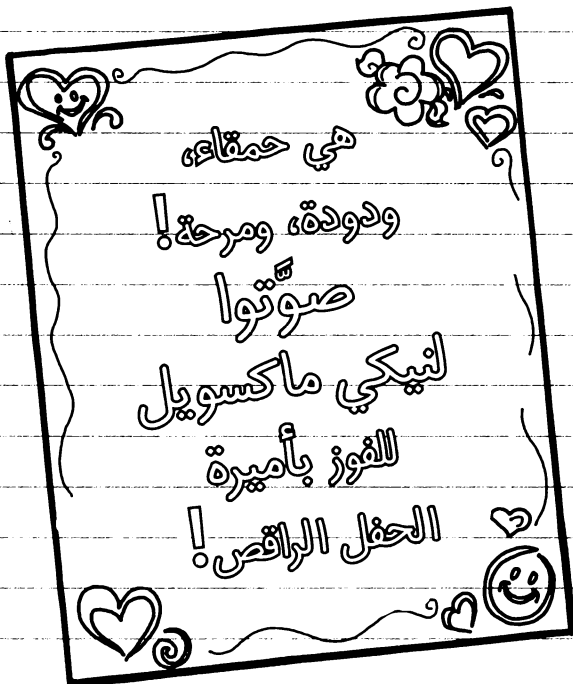 هي حمقاء،
ودودة، ومرحة!
صوَّتوا
لنيكي ماكسويل
للفوز بأميرة
الحفل الراقص!